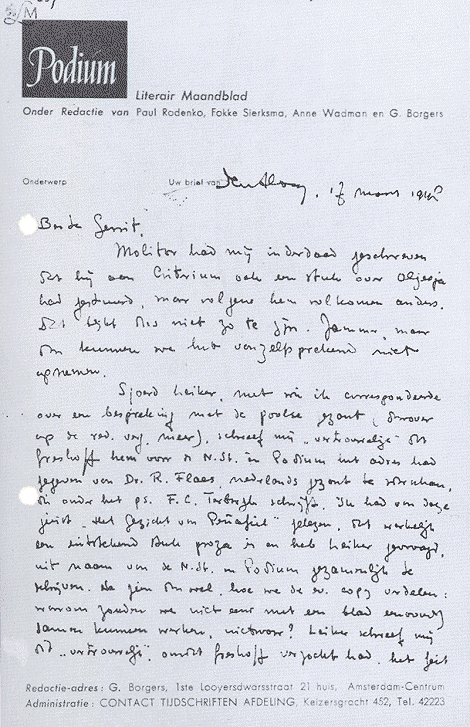 Podium
Literair Maandblad
Onder Redactie van Paul Rodenko, Fokke Sierksma, Anne Wadman en G. Borgers
Onderwerp
Uw brief van Den Haag, 17 maart 1948
Beste Gerrit,
Molitor had mij inderdaad geschreven
dat hij aan Criterium ook een stuk over Oljesja
had gestuurd, maar volgens hem volkomen anders.
Dat blijkt dus niet zo te zijn. Jammer, maar
dan kunnen we het vanzelfsprekend niet
opnemen.
Sjoerd Leiker, met wie ik correspondeerde
over een bespreking met de poolse gezant (daarover
op de red. verg. meer), schreef mij "vertrouwelijk" dat
Greshoff hem voor de N.St. en Podium het adres had
gegeven van Dr. R. Flaes, nederlands gezant te
die onder het ps. F.C. Terborgh schrijft. Ik had van deze
juist "Het Gezicht van Peñafiel" gelezen, dat werkelijk
een uitstekend stuk proza is en heb Leiker gevraagd,
uit naam van de N.St. en Podium gezamenlijk te
schrijven. We zien dan wel, hoe we de ev. copy verdelen:
waarom zouden we niet eens met een blad eenvoudig
samen kunnen werken, nietwaar? Leiker schreef mij
dit "vertrouwelijk", omdat Greshoff verzocht had, het feit
Redactie-adres: G. Borgers, 1ste Looyersdwarsstraat 21 huis, Amsterdam-Centrum
Administratie: CONTACT TIJDSCHRIFTEN AFDELING, Keizersgracht 452, Tel. 42223